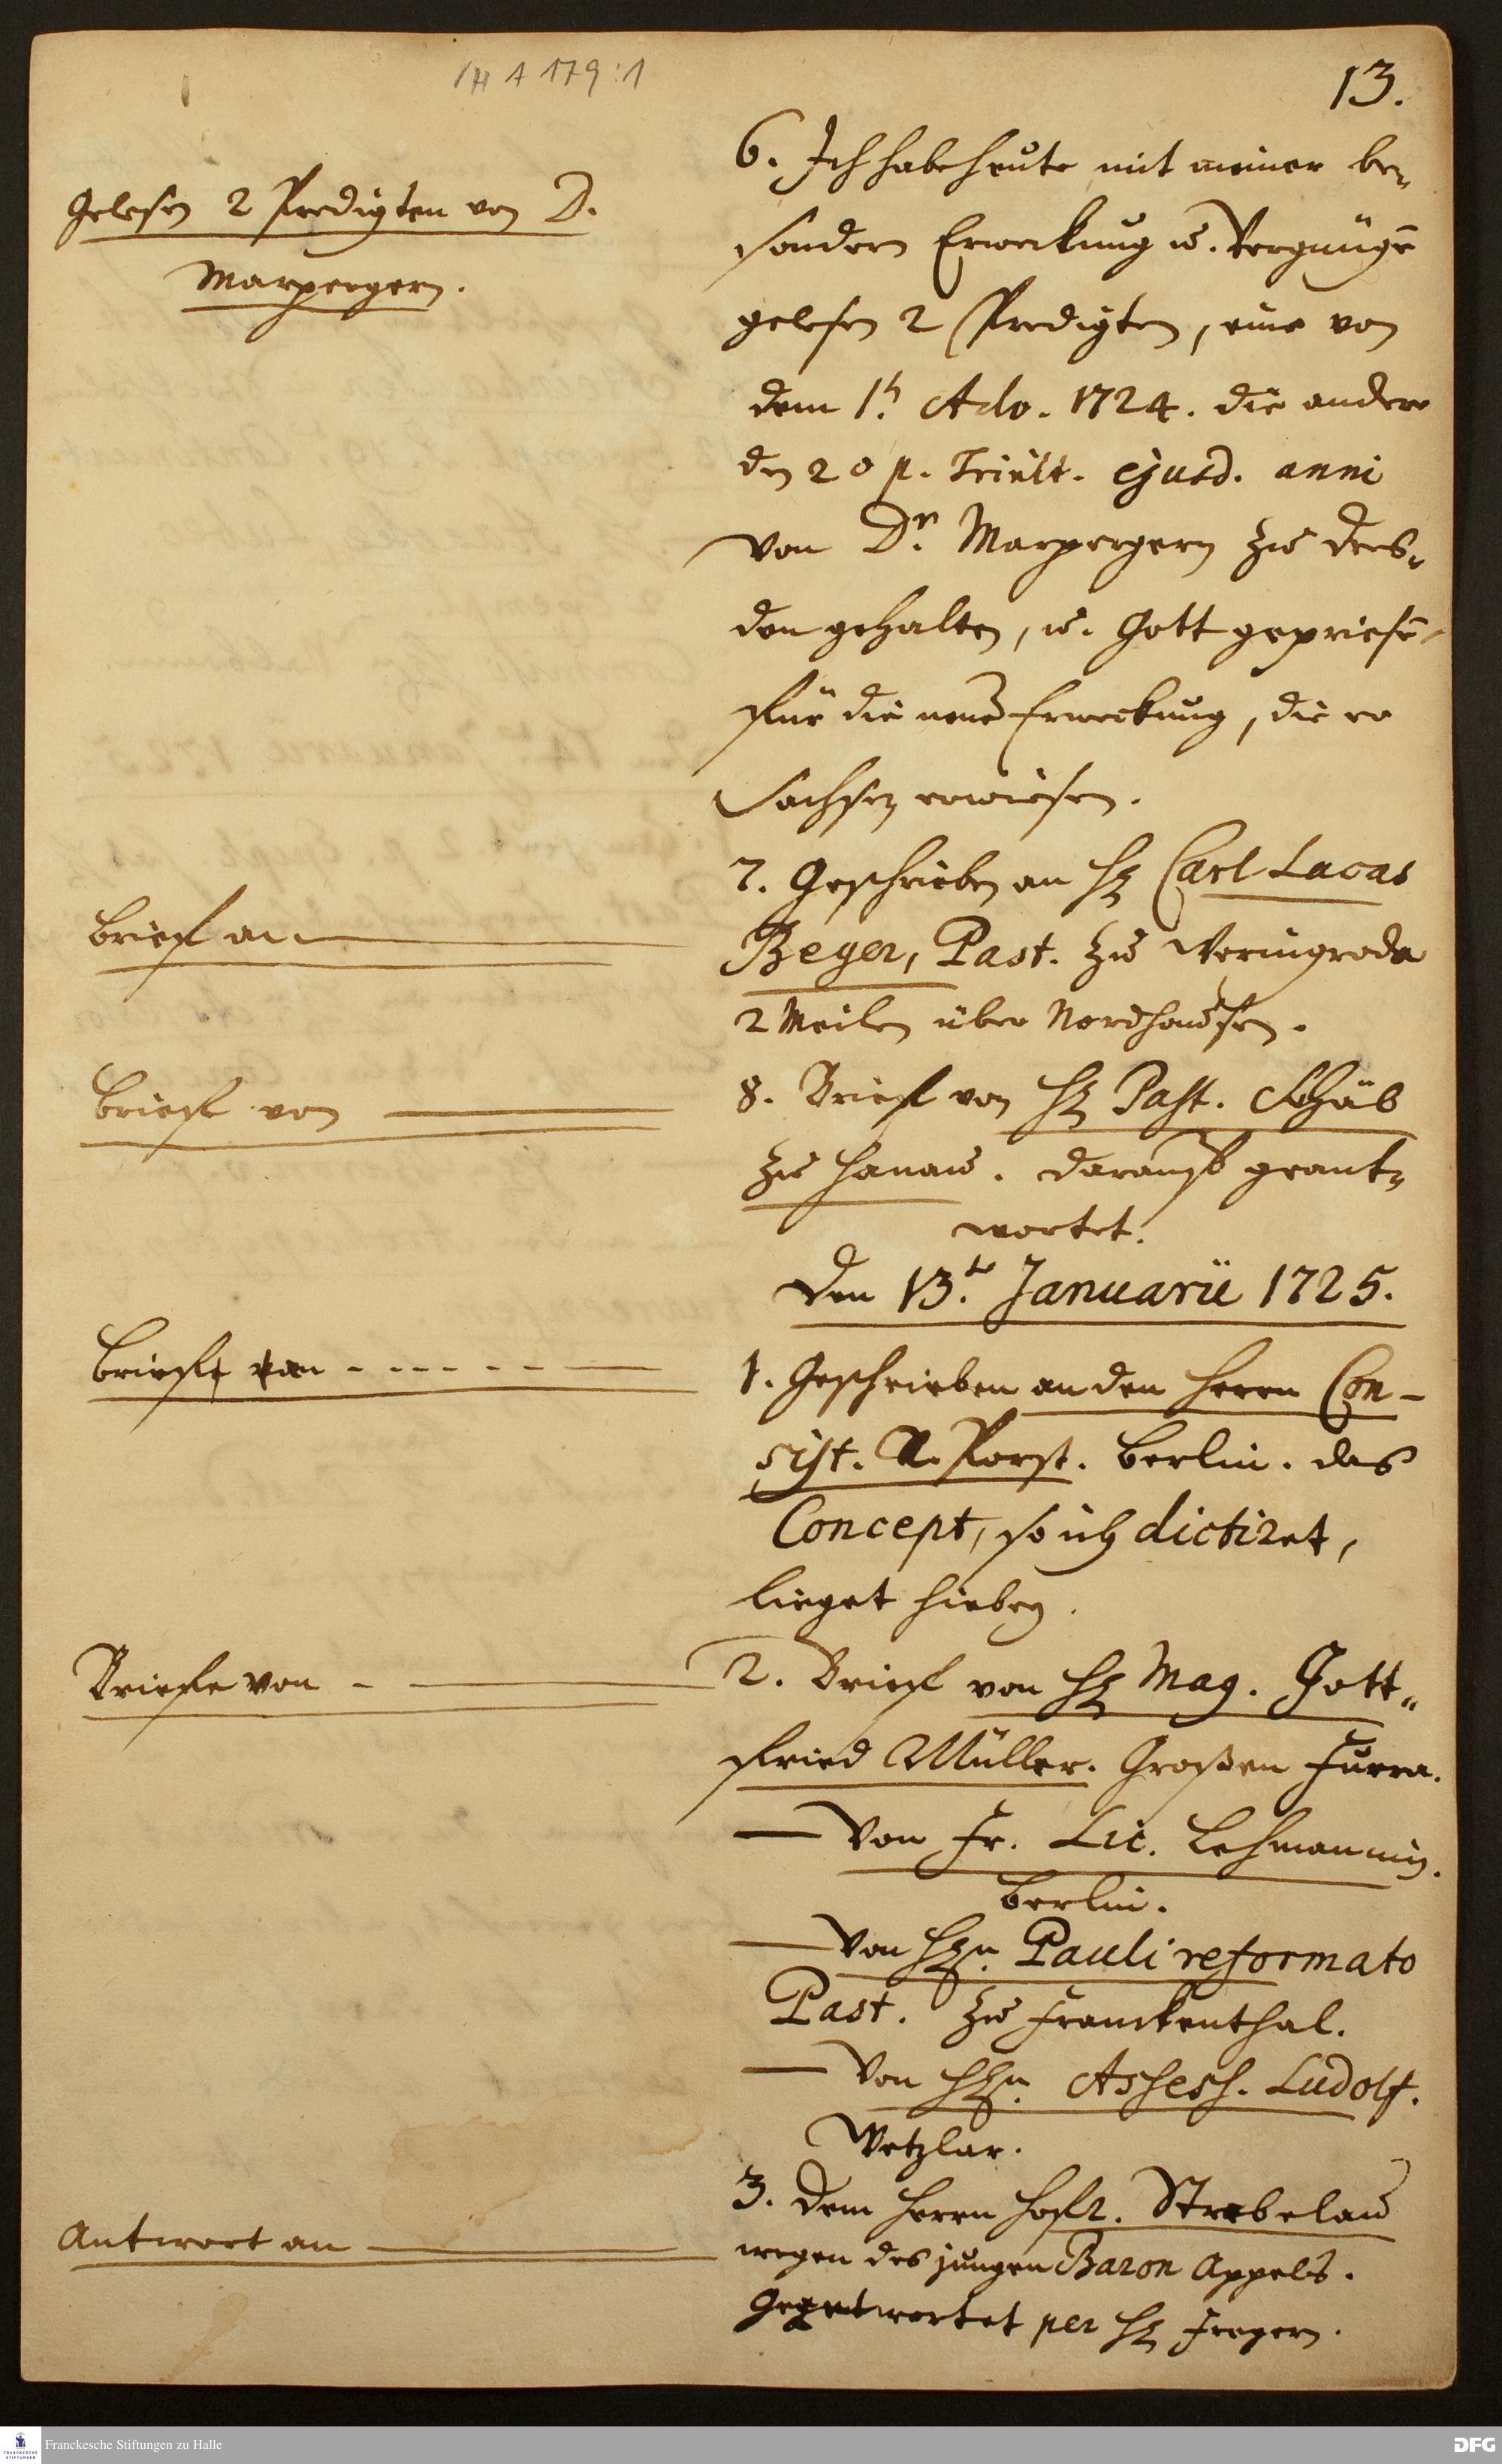 /H A 179:1
13.
Gelesen 2 Predigten von D.
Marpergern.
6. Ich habe heute mit meiner be-
sondern Erweckung u. Vergnügē
gelesen 2 Predigten, eine von
dem 1. Adv. 1724. die andere
den 20 p. Trinit. ejusd. anni
von Dn. Marpergern zu Dres-
den gehalten, u. Gott gepriesē
für die neue Erweckung, die er
Sachsen erwiesen.
Brief an
7. Geschrieben an H. Carl Lucas
Beyer, Past. zu Weringroda
2 Meilen über Nordhausen.
Brief von
8. Brief von H. Past. Schäb
zu Hanau. darauf geant-
wortet.
Den 13.t Januarii 1725.
Briefe
1. Geschrieben an den Herrn Con-
sist. R. Porst. Berlin. das
Concept, so ich dictiret,
lieget hiebey.
Briefe von
2. Brief von H. Mag. Gott-
fried Müller. Großen Furra.
— Von Fr. Lic. Lehmannin.
Berlin.
— Von Hn. Pauli reformato
Past. zu Franckenthal.
— Von Hn. Assess. Ludolf.
Wetzlar.
Antwort an
3. Dem Herrn Hofr. Strebelau
wegen des jungen Baron Appels.
Geantwortet per H. Freyern.
FRANCKESCHE STIFTUNGEN
Franckesche Stiftungen zu Halle
DFG